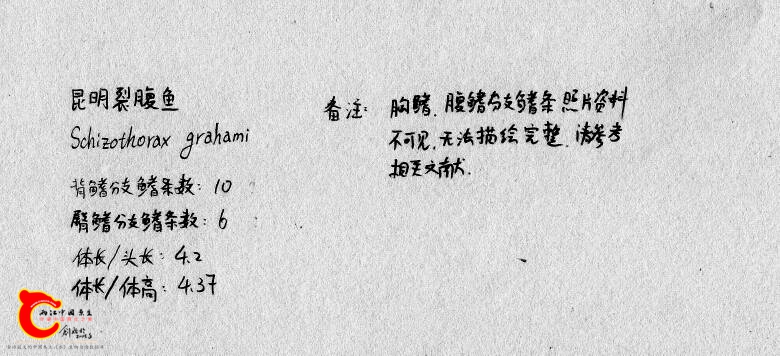 昆明裂腹鱼
Schizothorax grahami
背鳍分支鳍条数：10
臀鳍分支鳍条数：6
体长/头长：4.2
体长/体高：4.37
备注：胸鳍、腹鳍分支鳍条照片资料
不可见，无法描绘完整，请参考
相关文献.
两江中国原生